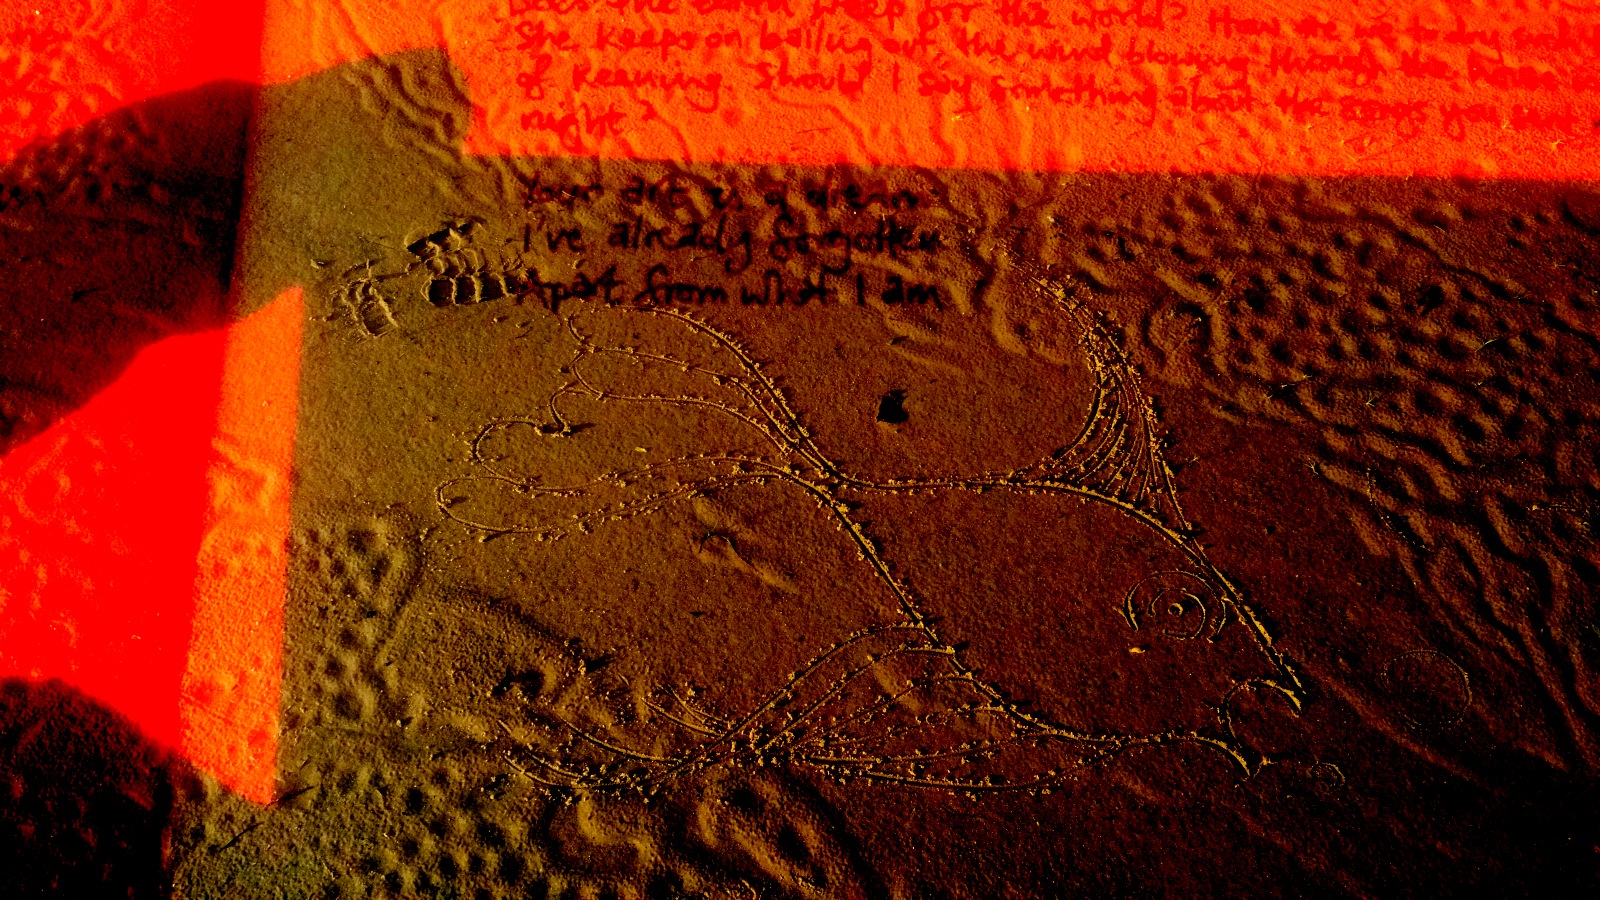 Does the earth weep for the world? How are we today
She keeps on bailing out the wind blowing through the
of keening. Should I say something about the songs you
night?
Your art is a dream
I've already forgotten
Apart from what I am